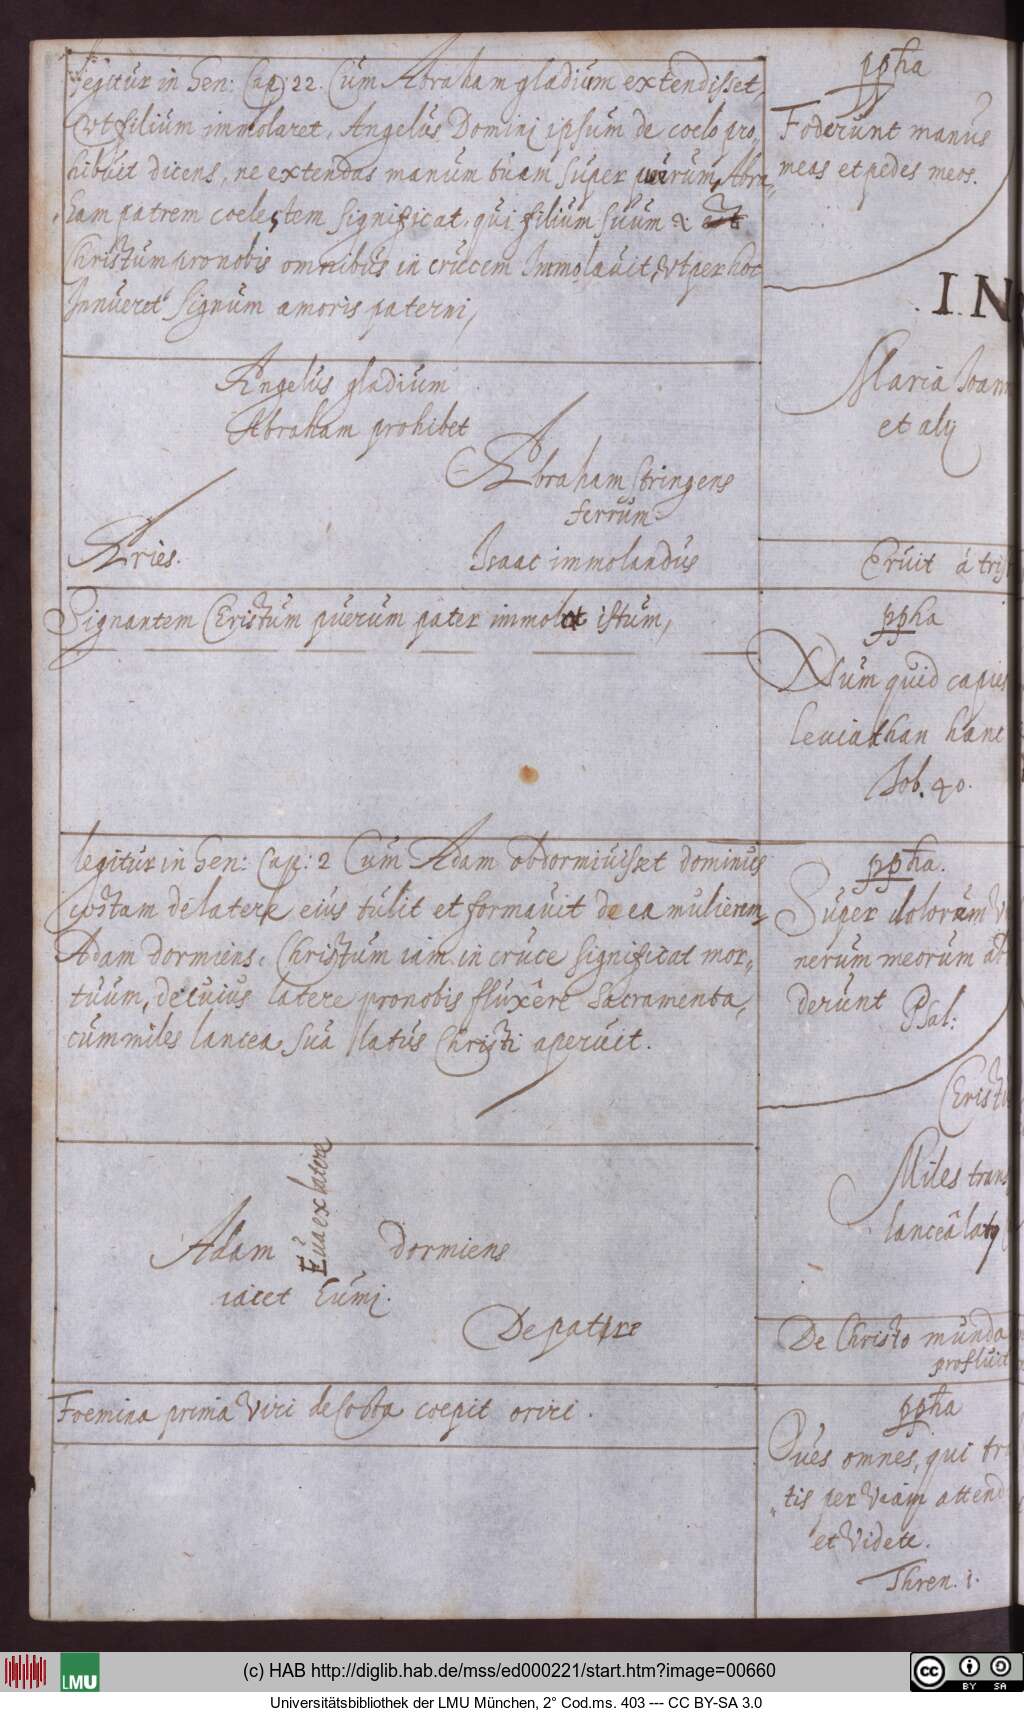 legitur in Gen: Cap: 22. Cum Abraham gladium extendisset,
vt filium immolaret, Angelus Domini ipsum de coelo pro„
hibuit dicens, ne extendas manum tuam super puerum, Abra„
ham patrem coelestem significat, qui filium suum
Christum pro nobis omnibus in crucem Immolauit, vt per hoc
Innueret signum amoris paterni,
Angelus gladium
Abraham prohibet
Abraham stringens
ferrum
Aries.
Isaac immolandus
Signantem Cristum puerum pater immolat istum,
legitur in Gen: Cap: 2 Cum Adam obdormiuisset dominus
costam de latere eius tulit et formauit de ea mulierem,
Adam dormiens, Christum iam in cruce significat mor„
tuum, de cuius latere pro nobis fluxêre sacramenta,
cum miles lancea suâ latus Christi aperuit.
Adam
Eua ex latere
dormiens
iacet
De patre
Foemina prima viri de costa coepit oriri.
ppha
Foderunt manus
meas et pedes meos.
IN
Maria Ioann
et alij
Eruit á tris
ppha
Num quid capies
leuiathan hanc
Iob. 40.
ppha.
Super dolorum v
nerum meorum ad
derunt Psal:
Cristu
Miles trans
lanceâ latq
De Christo munda
profluit
ppha
O ues omnes, qui tr
tis per viam attend
et videte.
Thren. 1.
LMU
(c) HAB http://diglib.hab.de/mss/ed000221/start.htm?image=00660
cc BY SA
Universitätsbibliothek der LMU München, 2° Cod.ms. 403 --- CC BY-SA 3.0